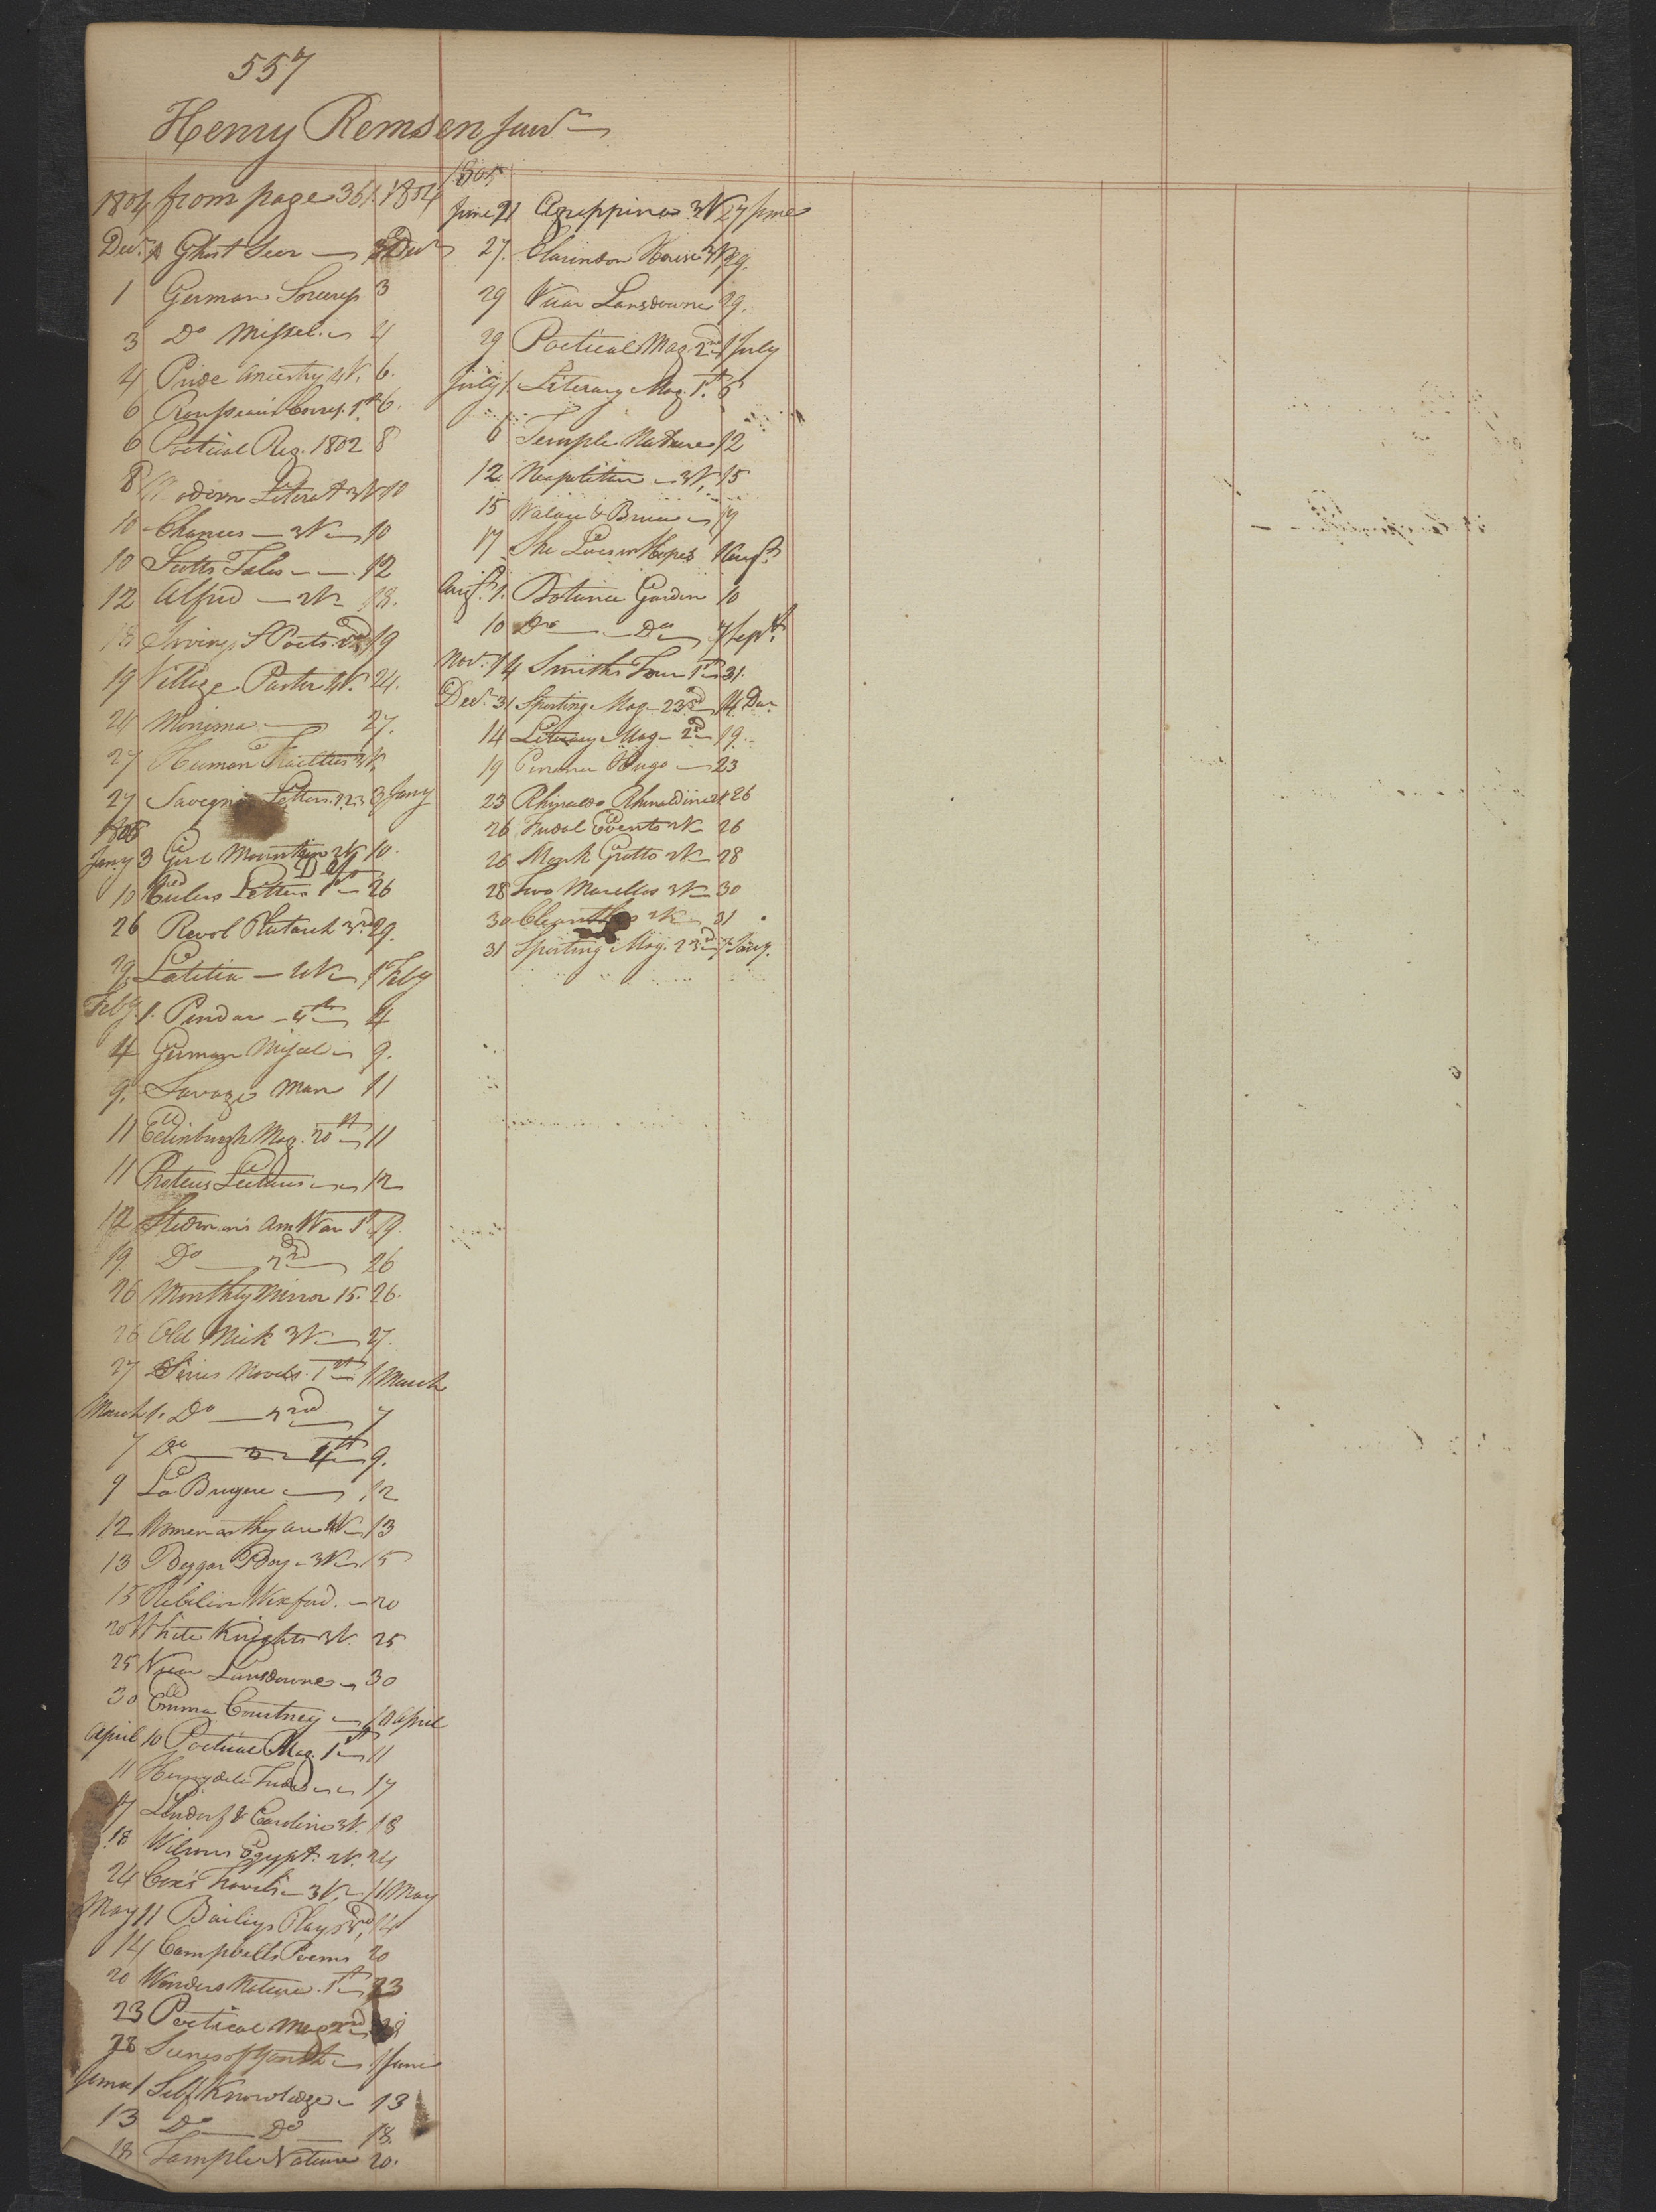 557
Henry Remsen Junr
1804 from page 361. 1804
Decr 1 Ghost Seer 3 Decr
1 German Sorceress 3
3 Do Miscel. 4
4 Pride Ancestry 4V. 6.
6 Rousseau's Corresp. 1st 6.
6 Poetical Reg. 1802 8
8 Modern Literat 3V 10
10 Chances 3V 10
10 Scotts Tales 12
12 Alfred 2V 18.
18 Irvings S Poets 2d 19
19 Village Pastor 4V. 24.
24 Monima 27.
27 Human Frailties 3V.
27 Savegnis Letters 1.2.3 3 Jany
1805
Jany 3 Girl Mountain 2V 10.
10 Eulers Letters 1st 26
26 Revol Plutarch 3rd 29.
29. Letitia 4V 1 Feby
Feby 1. Pindar 4th 4
4 German Miscel 9.
9. Savage Man 11
11 Edinburgh Mag. 20th 11
11 Proteus Lectures 12
12 Stedman's Am War 1st 19.
19. Do 2nd 26
26 Monthly Mirror 15. 26.
26 Old Nick 3V 27.
27 Series Novels. 1st 1 March
March 1. Do 2nd 7
7 Do 3 4th 9.
9 La Bruyere 12
12 Women as they are 4V 13
13 Beggar Boy 3V 15
15 Sibilin Wexford. 20
20 White Knights 3V. 25
25 Vicar Lansdowne 30
30 Emma Courtney 10 April
April 10 Poetical Mag. 1st 11
11 17
17 Lindorf & Caroline 3V. 18
18 Wilsons Egypt. 2V. 24
24 Cox's Travels 3V. 11 May
May 11 Bailys Plays 3d, 14
14 Campbells Poems 20
20 Wonders Nature. 1st 23
23 Poetical Mag 2nd 28
28 Scenes of Youth 1 June
June 1 Self Knowledge 13
13 Do Do 18.
18 Temple Nature 20.
1805
June 21 Agrippina 3V 27 June
27. Clarindon House 3V 29.
29 Vicar Lansdowne 29.
29 Poetical Mag. 2nd 1 July
July 1. Literary Mag. 1st. 6
6 Temple Nature 12
12 Neapolitan 3V, 15
15 Walace & Bruce 17
17 She Lives in Hopes 1 Augt.
Augt. 1. Botanic Garden 10
10 Do Do 7 Sept.
Nov. 14 Smiths Tour 1st 31.
Decr 31 Sporting Mag 23d 14 Decr
14 Literary Mag 2d 19.
19 Hugo 23
23 Rhinaldo Rhinaldini 2V 26
26 Fudal Events 2V 26
26 Monk Grotto 2V 28
28 Two Marellos 2V 30
30 Cleanthes 2V 31
31 Sporting Mag. 23d 7 Jany.